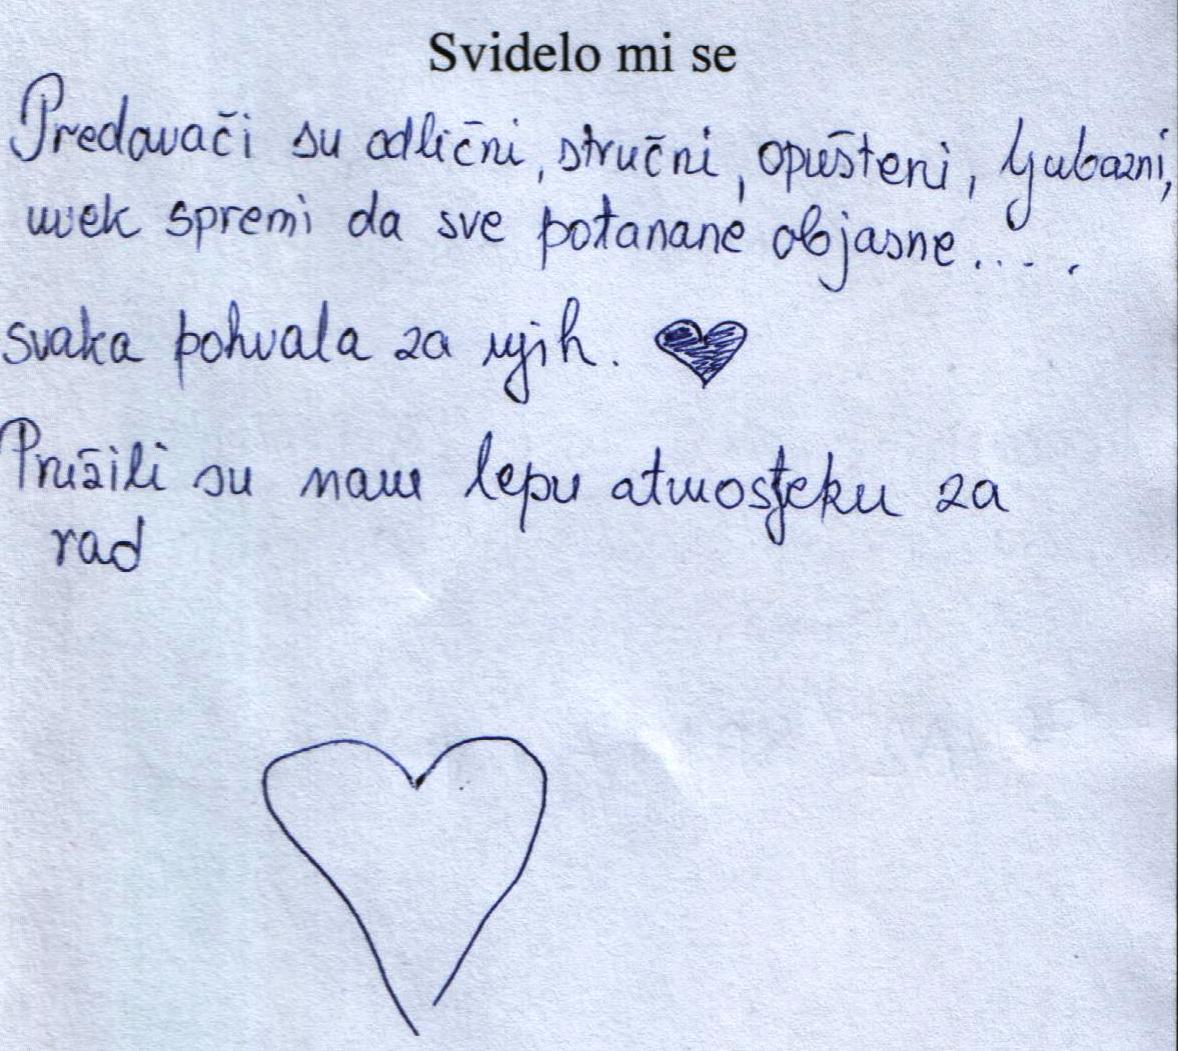 Svidelo mi se
Predavači su odlični, stručni, opušteni, ljubazni,
uvek spremi da sve potanane objasne....
svaka pohvala za njih.
Pružili su nam lepu atmosferu za
rad